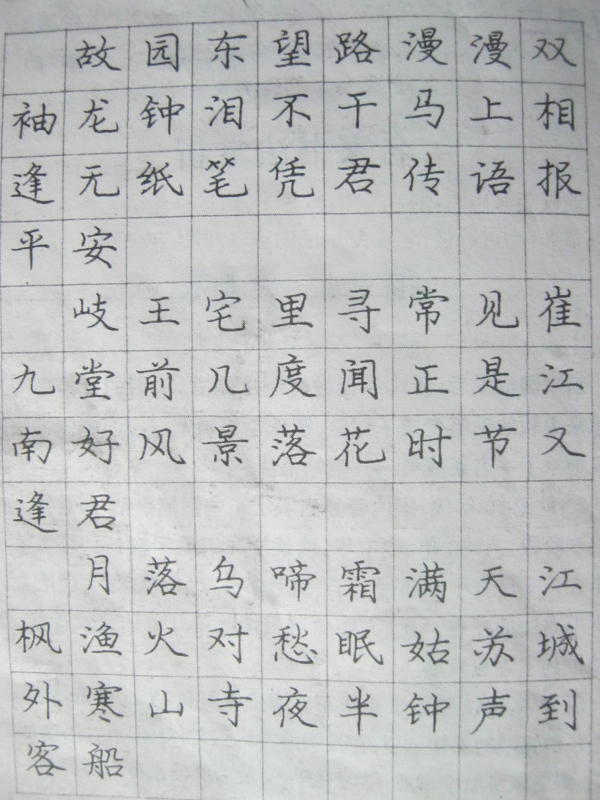 故园东望路漫漫双
袖龙钟泪不干马上相
逢无纸笔凭君传语报
平安
岐王宅里寻常见崔
九堂前几度闻正是江
南好风景落花时节又
逢君
月落乌啼霜满天江
枫渔火对愁眠姑苏城
外寒山寺夜半钟声到
客船